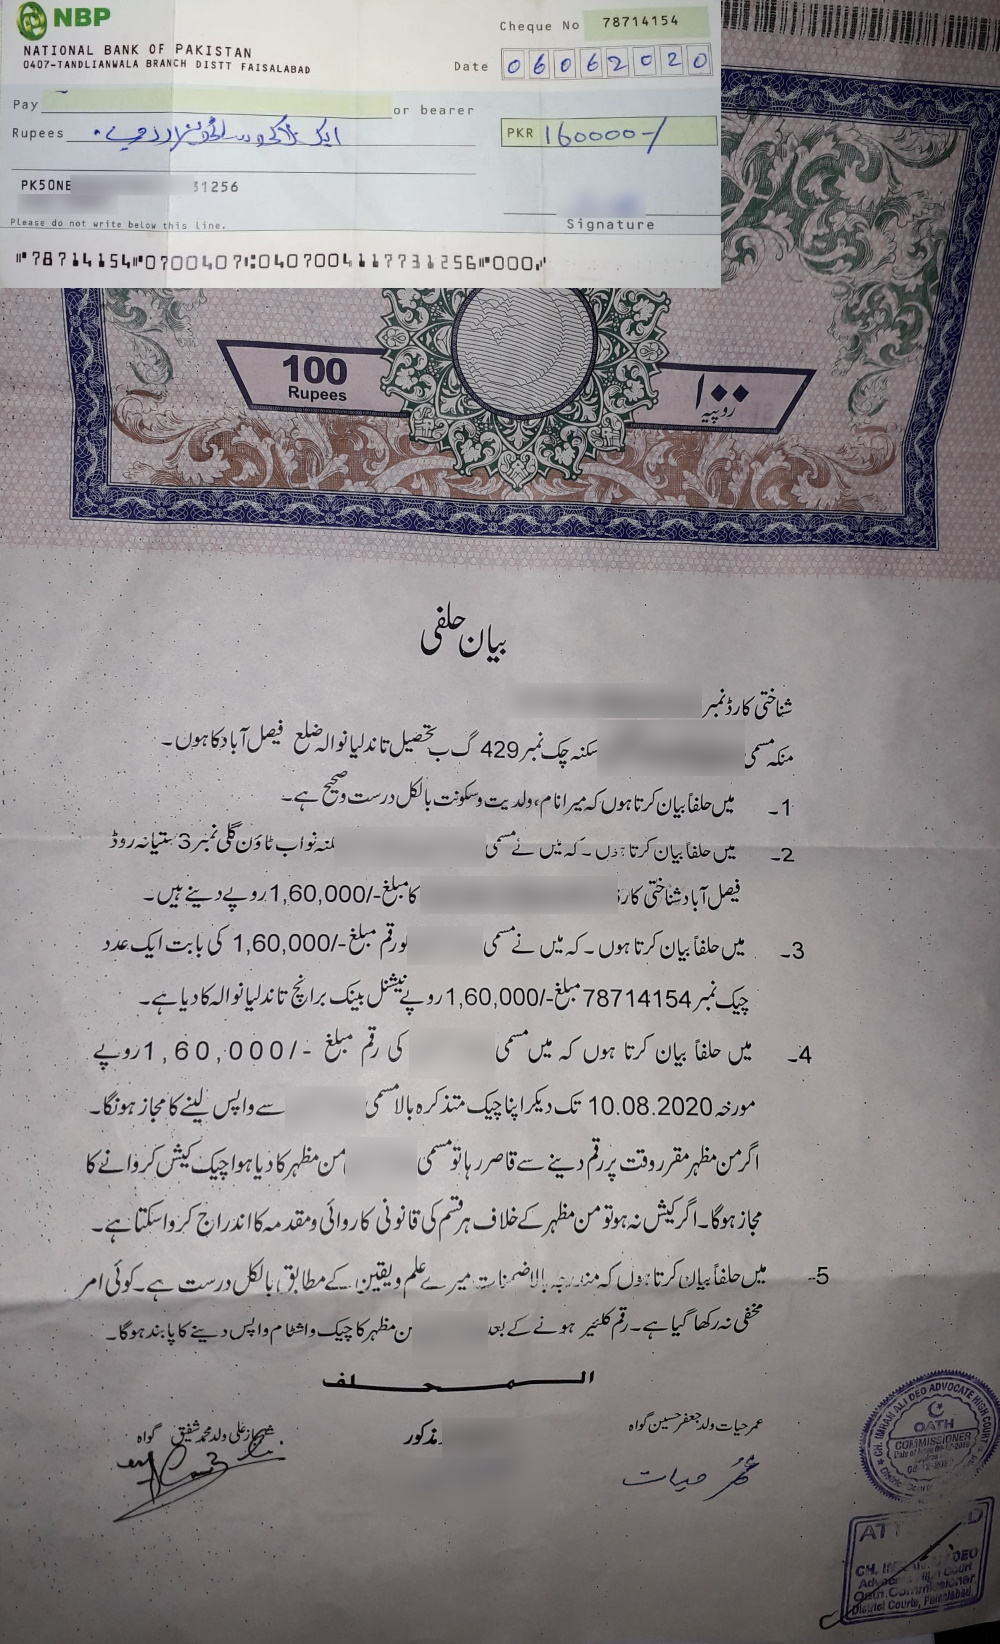 NBP
NATIONAL BANK OF PAKISTAN
0407-TANDLIANWALA BRANCH DISTT FAISALABAD
Cheque No 78714154
Date 06062020
Pay
or bearer
Rupees ایک لاکھ ساٹھ ہزار روپے
PKR 160000-/
PK50NE 31256
Please do not write below this line.
Signature
"78714154"0700407:0407004117731256"000"
100
Rupees
۱۰۰
روپیہ
بیان حلفی
شناختی کارڈ نمبر
منکہ مسمی سکنہ چک نمبر 429 گ ب تحصیل تاندلیانوالہ ضلع فیصل آباد کا ہوں۔
1۔ میں حلفاً بیان کرتا ہوں کہ میرا نام، ولدیت و سکونت بالکل درست و صحیح ہے۔
2۔ میں حلفاً بیان کرتا ہوں۔ کہ میں نے مسمی نواب ٹاؤن گلی نمبر 3 ستیانہ روڈ
فیصل آباد شناختی کارڈ کا مبلغ -/1,60,000 روپے دینے ہیں۔
3۔ میں حلفاً بیان کرتا ہوں۔ کہ میں نے مسمی کو رقم مبلغ -/1,60,000 کی بابت ایک عدد
چیک نمبر 78714154 مبلغ -/1,60,000 روپے نیشنل بینک برانچ تاندلیانوالہ کا دیا ہے۔
4۔ میں حلفاً بیان کرتا ہوں کہ میں مسمی کی رقم مبلغ -/1,60,000 روپے
مورخہ 10.08.2020 تک دیکر اپنا چیک متذکرہ بالا مسمی سے واپس لینے کا مجاز ہونگا۔
اگر من مظہر مقرر وقت پر رقم دینے سے قاصر رہا تو مسمی من مظہر کا دیا ہوا چیک کیش کروانے کا
مجاز ہوگا۔ اگر کیش نہ ہو تو من مظہر کے خلاف ہر قسم کی قانونی کاروائی و مقدمہ کا اندراج کروا سکتا ہے۔
5۔ میں حلفاً بیان کرتا ہوں کہ مندرجہ بالا ضمنات میرے علم و یقین کے مطابق بالکل درست ہے۔ کوئی امر
مخفی نہ رکھا گیا ہے۔ رقم کلئیر ہونے کے بعد من مظہر کا چیک واشٹام واپس دینے کا پابند ہوگا۔
المحلف
عمر حیات ولد جعفر حسین گواہ
مذکور
ولد محمد شفیق گواہ
عمر حیات
CH. IMRAN ALI DEO ADVOCATE HIGH COURT
OATH
COMMISSIONER
CH. DEO
Advocate High Court
Oath Commissioner
District Courts, Faisalabad